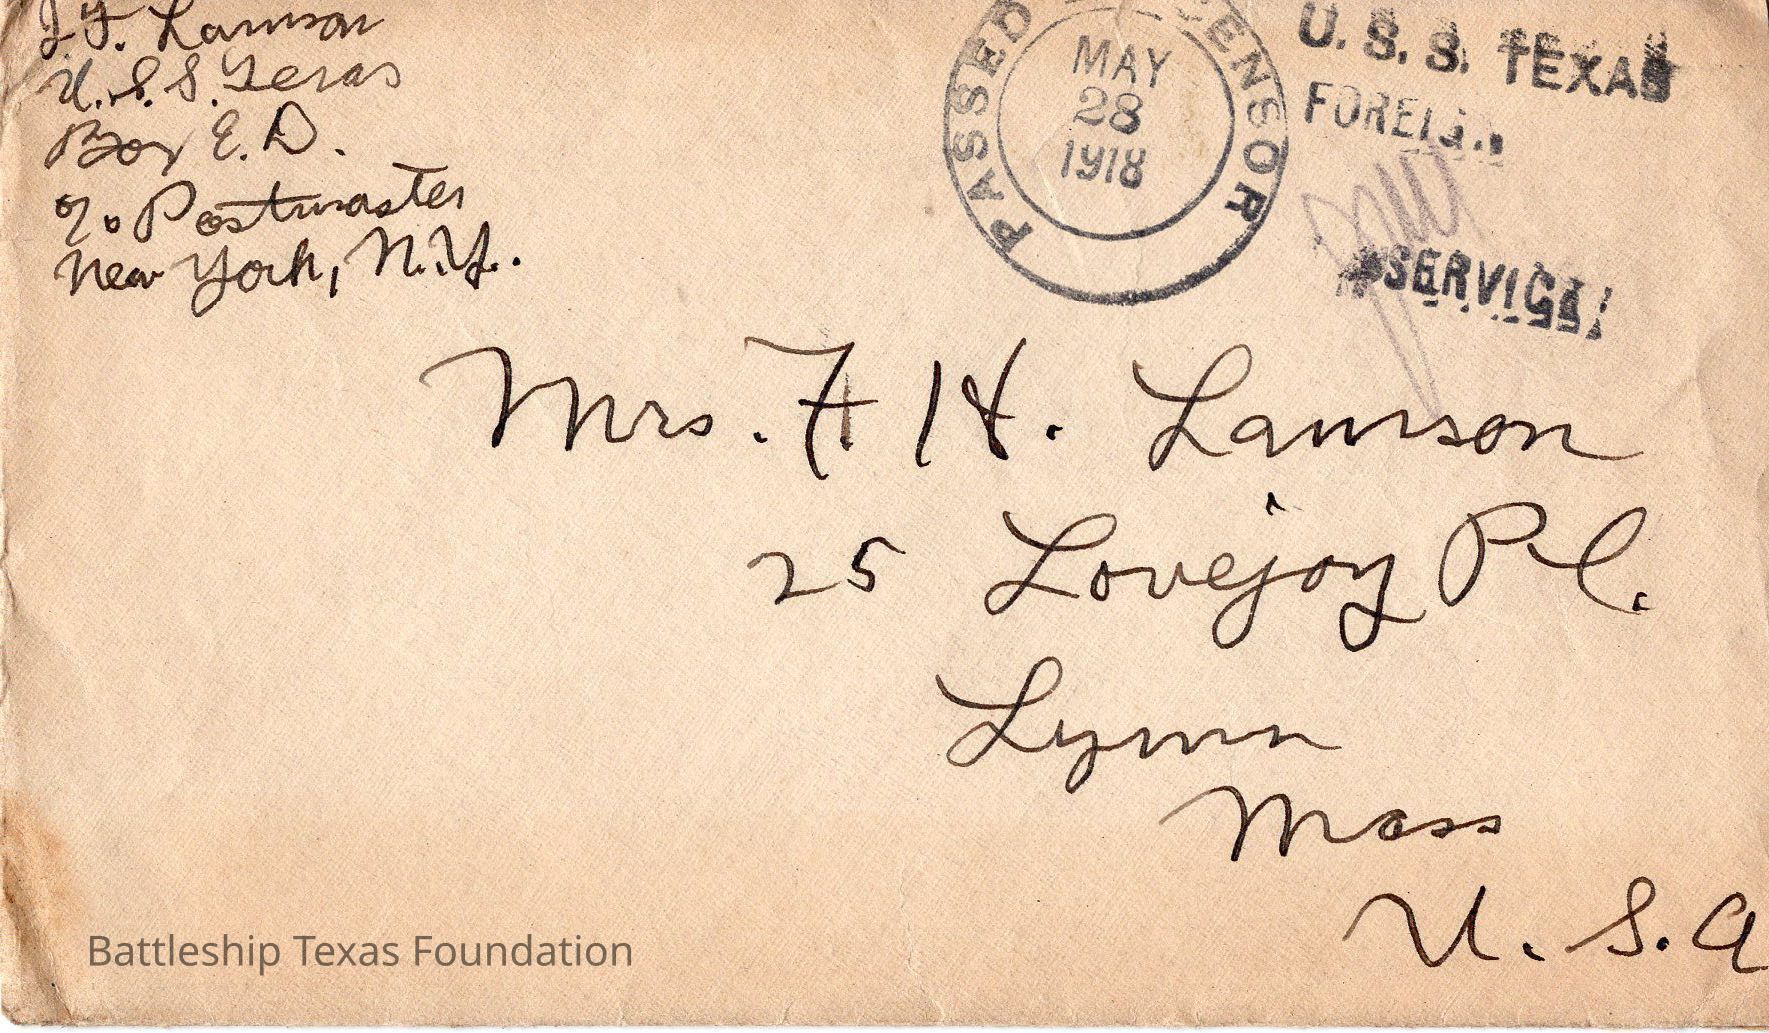 J. Y. Lamson
U.S.S. Texas
Box E. D.
c/o Postmaster
New York, N.Y.
PASSED CENSOR
MAY
28
1918
U. S. S. TEXAS
FOREIGN
SERVICE
Mrs. F. H. Lamson
25 Lovejoy Pl.
Lynn
Mass
U. S. A
Battleship Texas Foundation